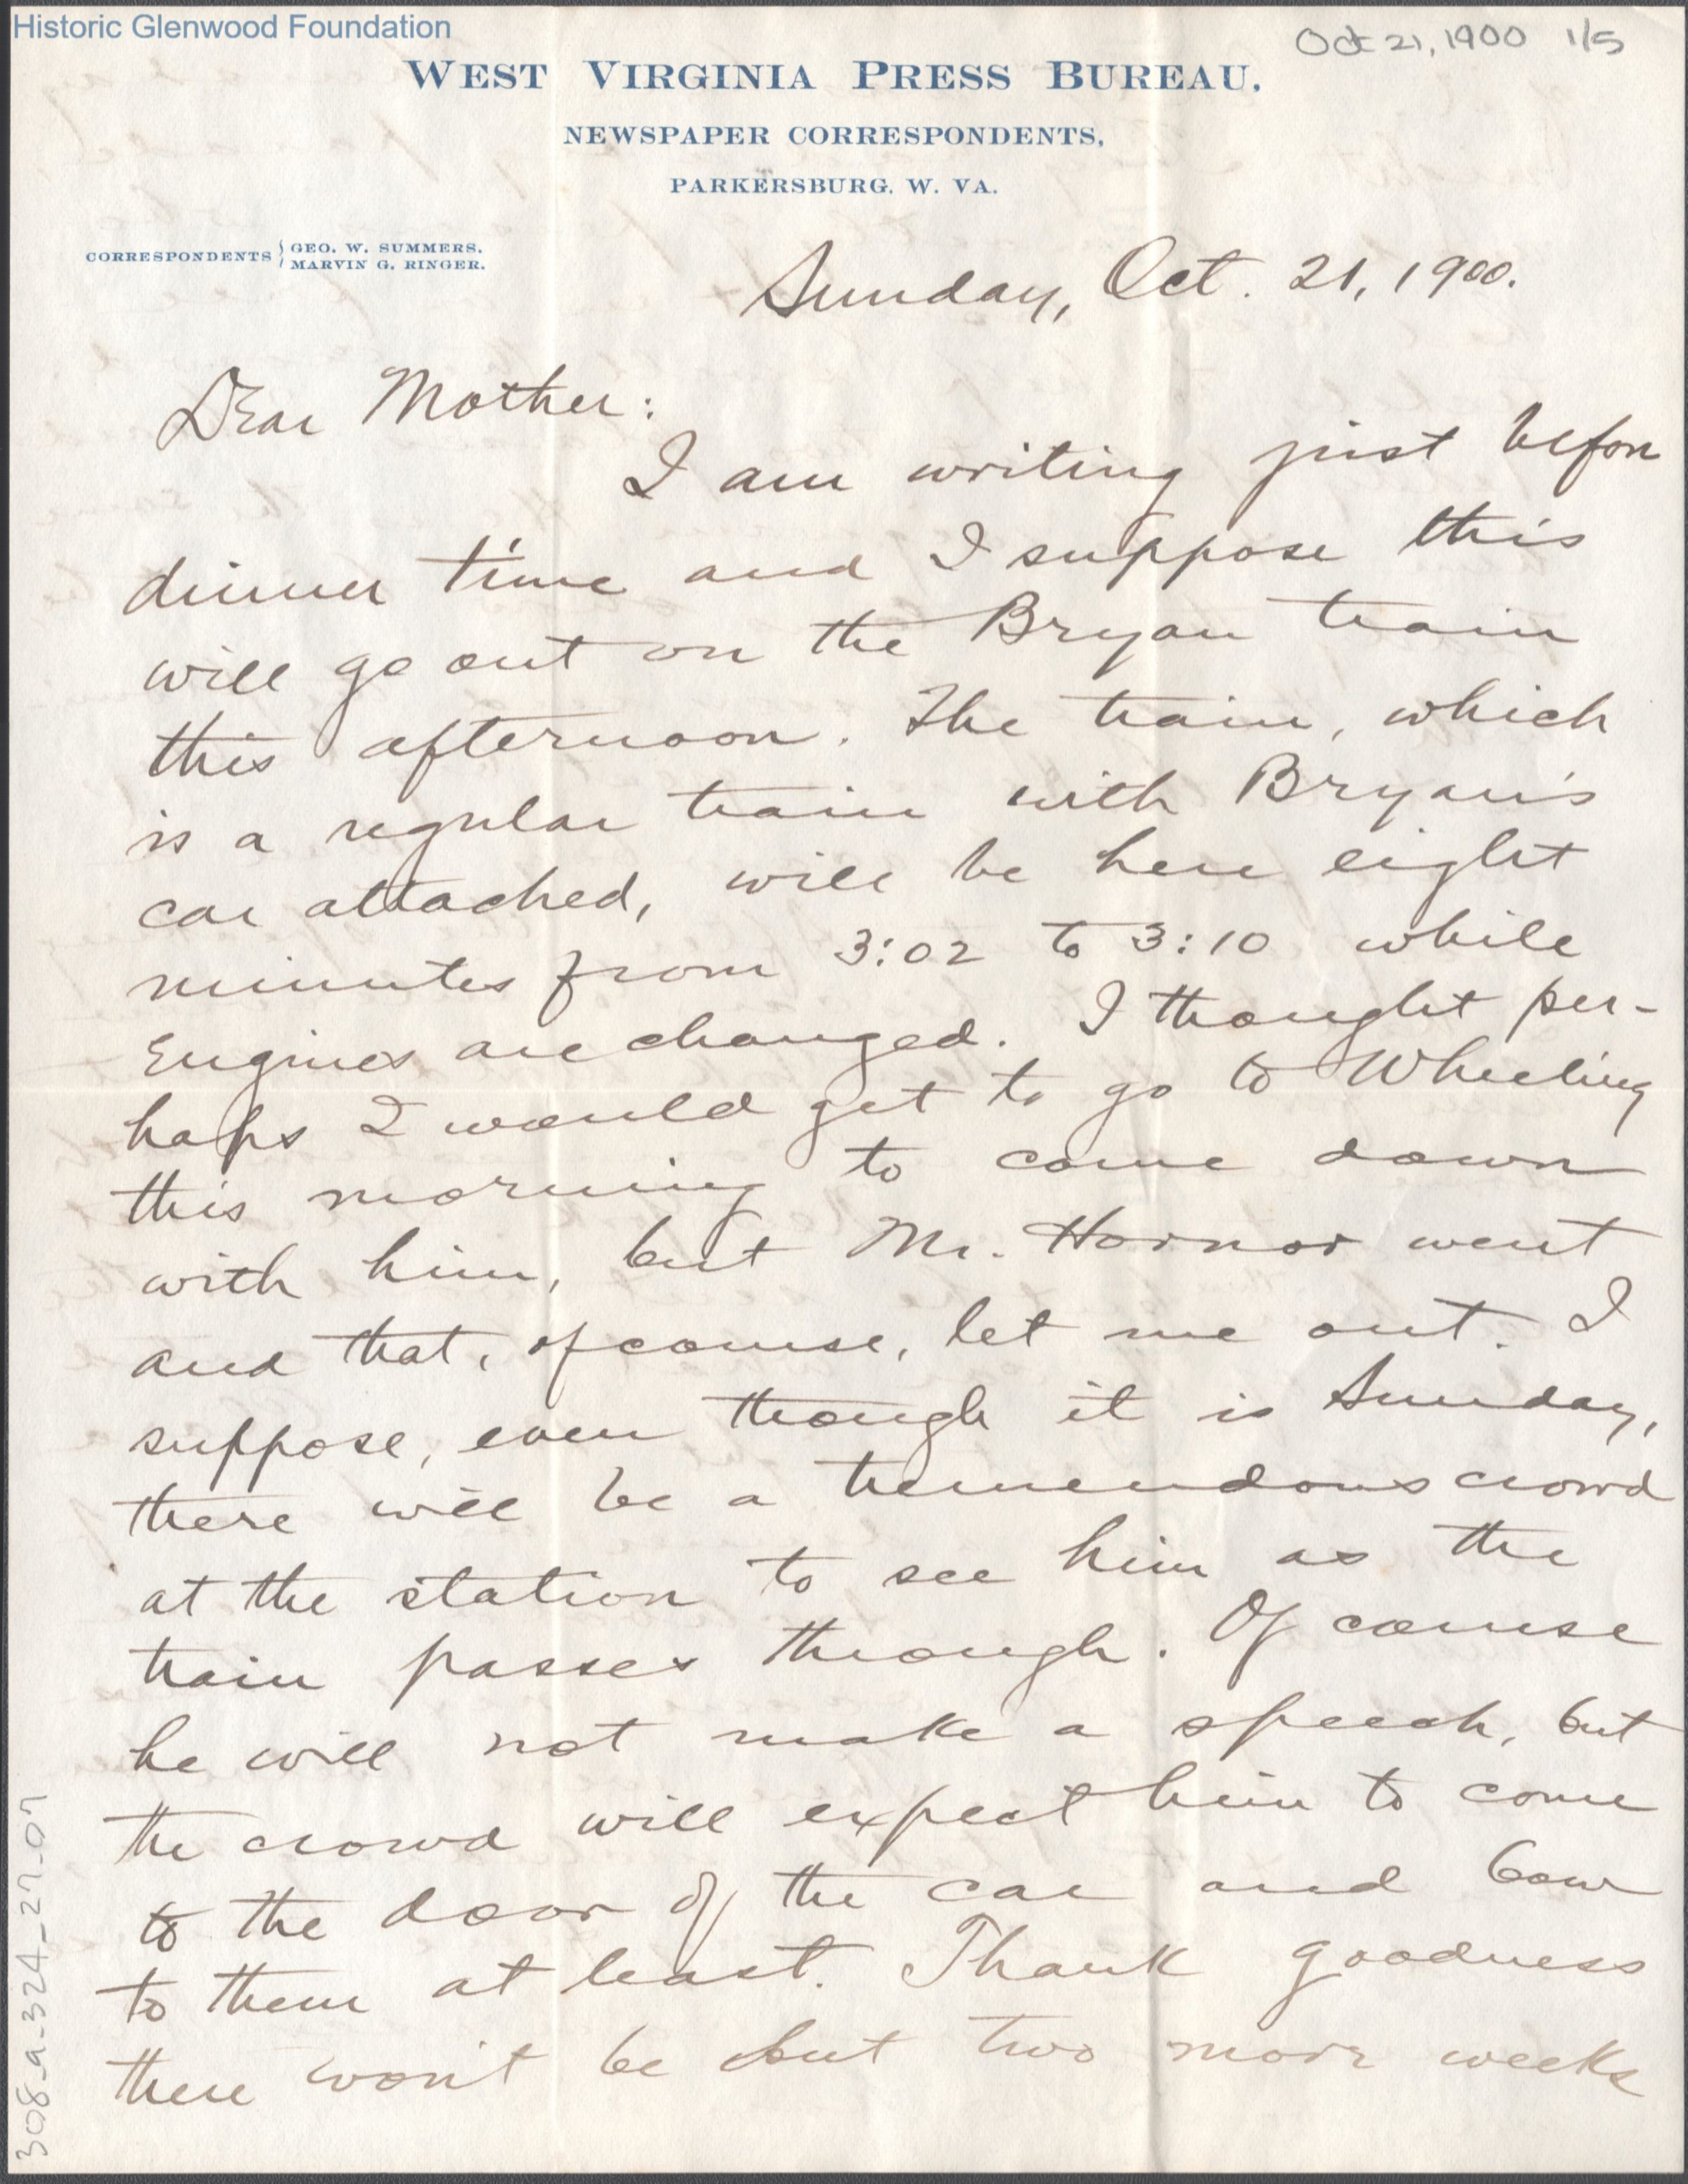 Historic Glenwood Foundation
Oct 21, 1900 1/5
WEST VIRGINIA PRESS BUREAU.
NEWSPAPER CORRESPONDENTS,
PARKERSBURG. W. VA.
CORRESPONDENTS { GEO. W. SUMMERS.
MARVIN G. RINGER.
Sunday, Oct. 21, 1900.
Dear Mother:
I am writing just before
dinner time and I suppose this
will go out on the Bryan train
this afternoon. The train, which
is a regular train with Bryan's
car attached, will be here eight
minutes from 3:02 to 3:10 while
engines are changed. I thought per-
haps I would get to go to Wheeling
this morning to come down
with him, but Mr. Hornor went
and that, of course, let me out. I
suppose, even though it is Sunday,
there will be a tremendous crowd
at the station to see him as the
train passes through. Of course
he will not make a speech, but
the crowd will expect him to come
to the door of the car and bow
to them at least. Thank goodness
there won't be but two more weeks
308_a_324_27_07